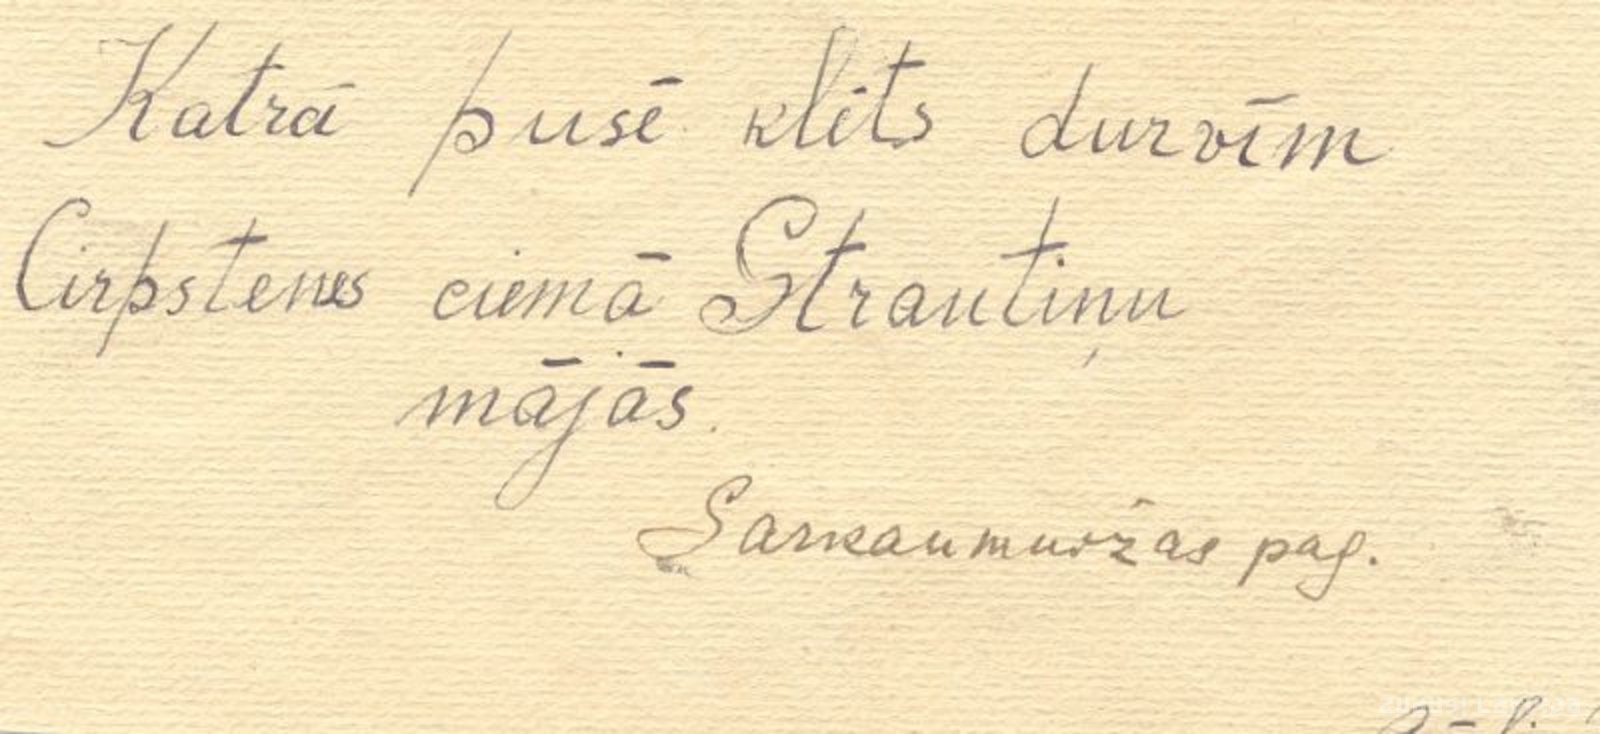 Katrā pusē klēts durvīm
Cirpstenes ciemā Strautiņu
mājās.
Sarkanmuižas pag.